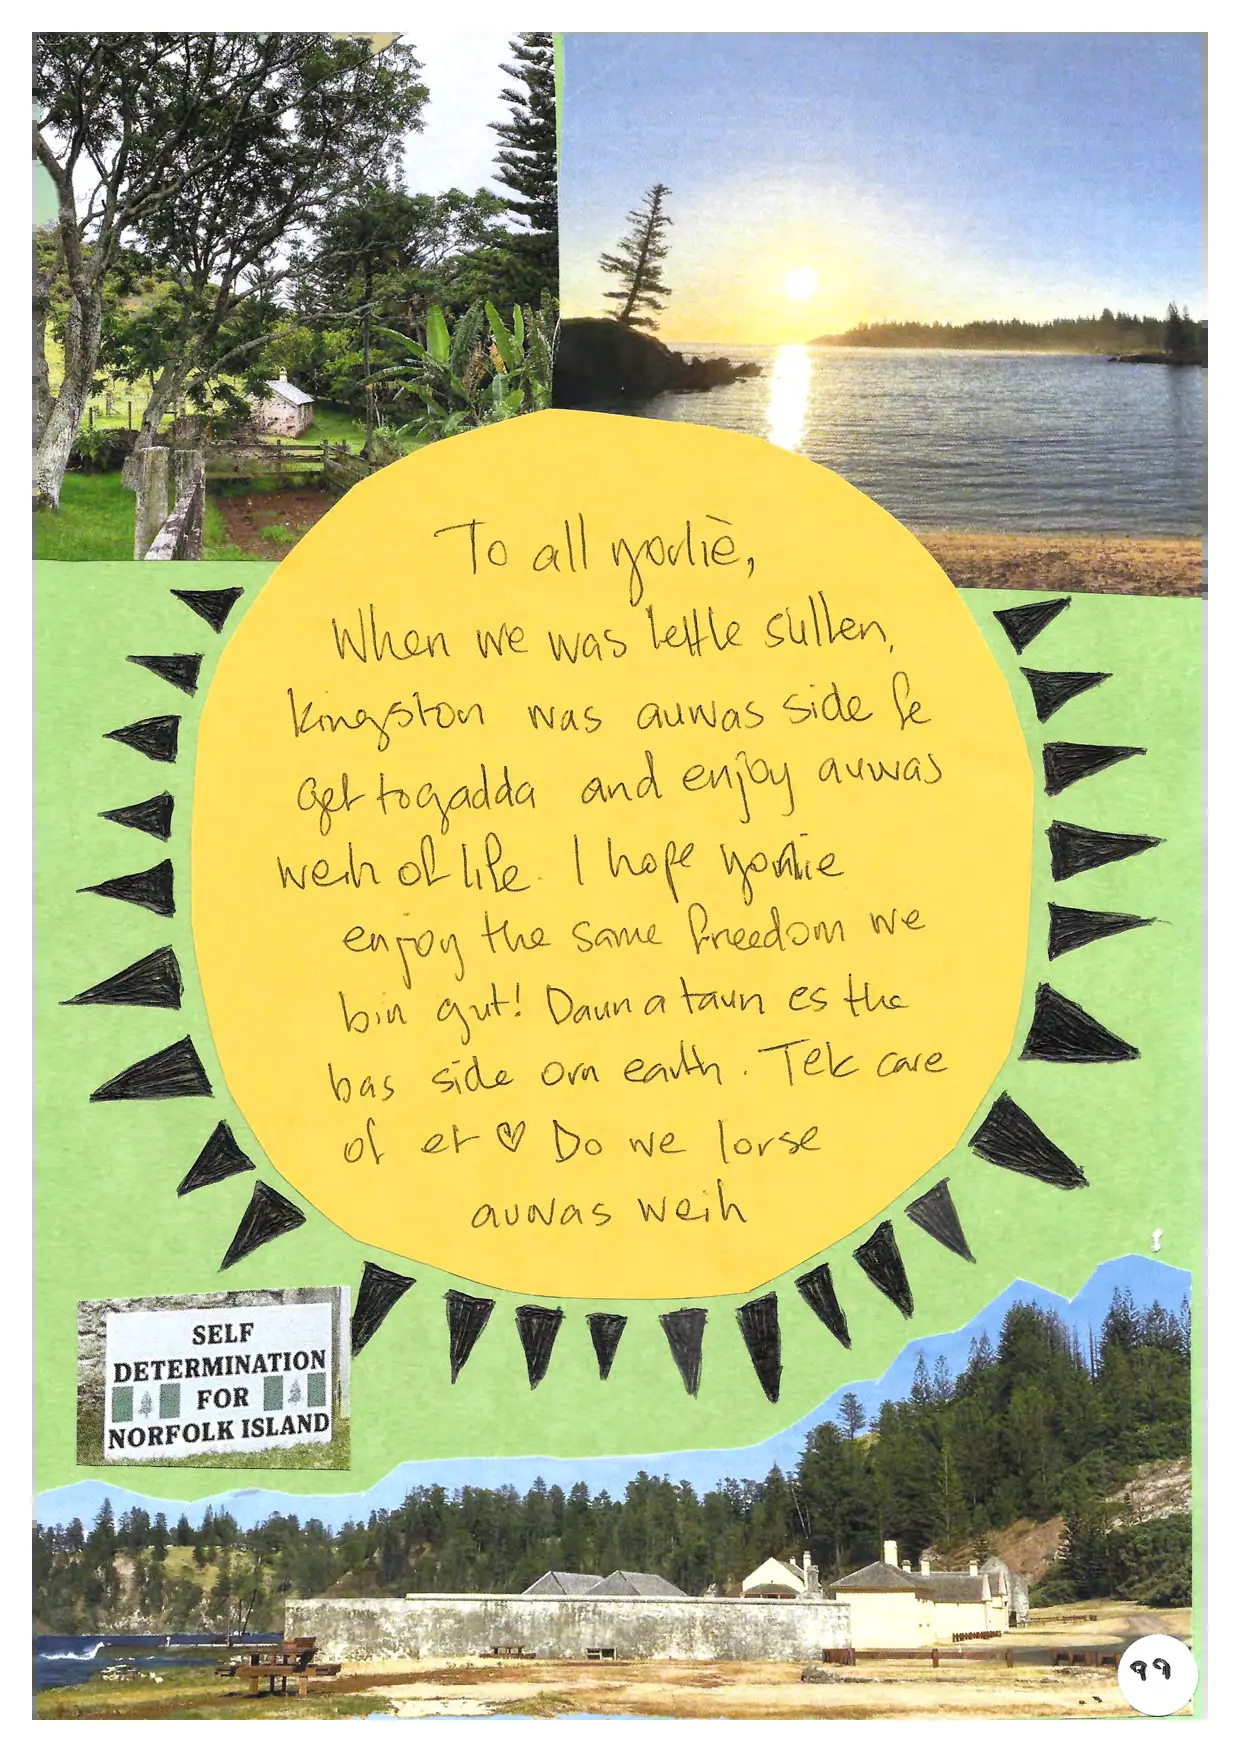 To all yorliè,
When we was lettle sullen,
kingston was auwas side fe
get togadda and enjoy auwas
weih of life. I hope yorlie
enjoy the same freedom we
bin gut! Daun a taun es the
bas side orn earth. Tek care
of et ♡ Do we lorse
auwas weih
SELF
DETERMINATION
FOR
NORFOLK ISLAND
99